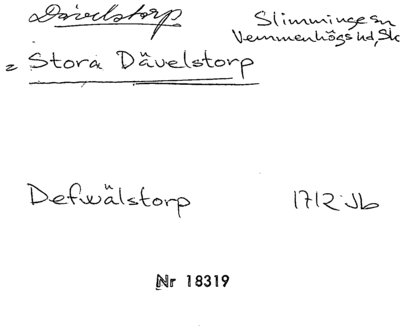 Dävelstorp
Slimminge sn
Vemmenhögs hd, Sk
= Stora Dävelstorp
Defwälstorp 1712 Jb
Nr 18319